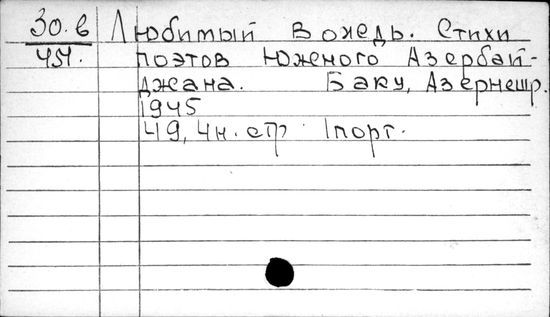 30.в Любимый вождь. Стихи
457. поэтов Южного Азербай-
джана. Баку, Азернешр.
1945
49, 4н. стр 1порт.